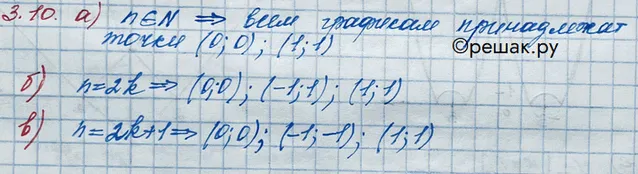 3.10. а) n∈N ⇒ всем графикам принадлежат
точки (0;0); (1;1)
©решак.ру
б) n=2k ⇒ (0;0); (-1;1); (1;1)
в) n=2k+1 ⇒ (0;0); (-1;-1); (1;1)